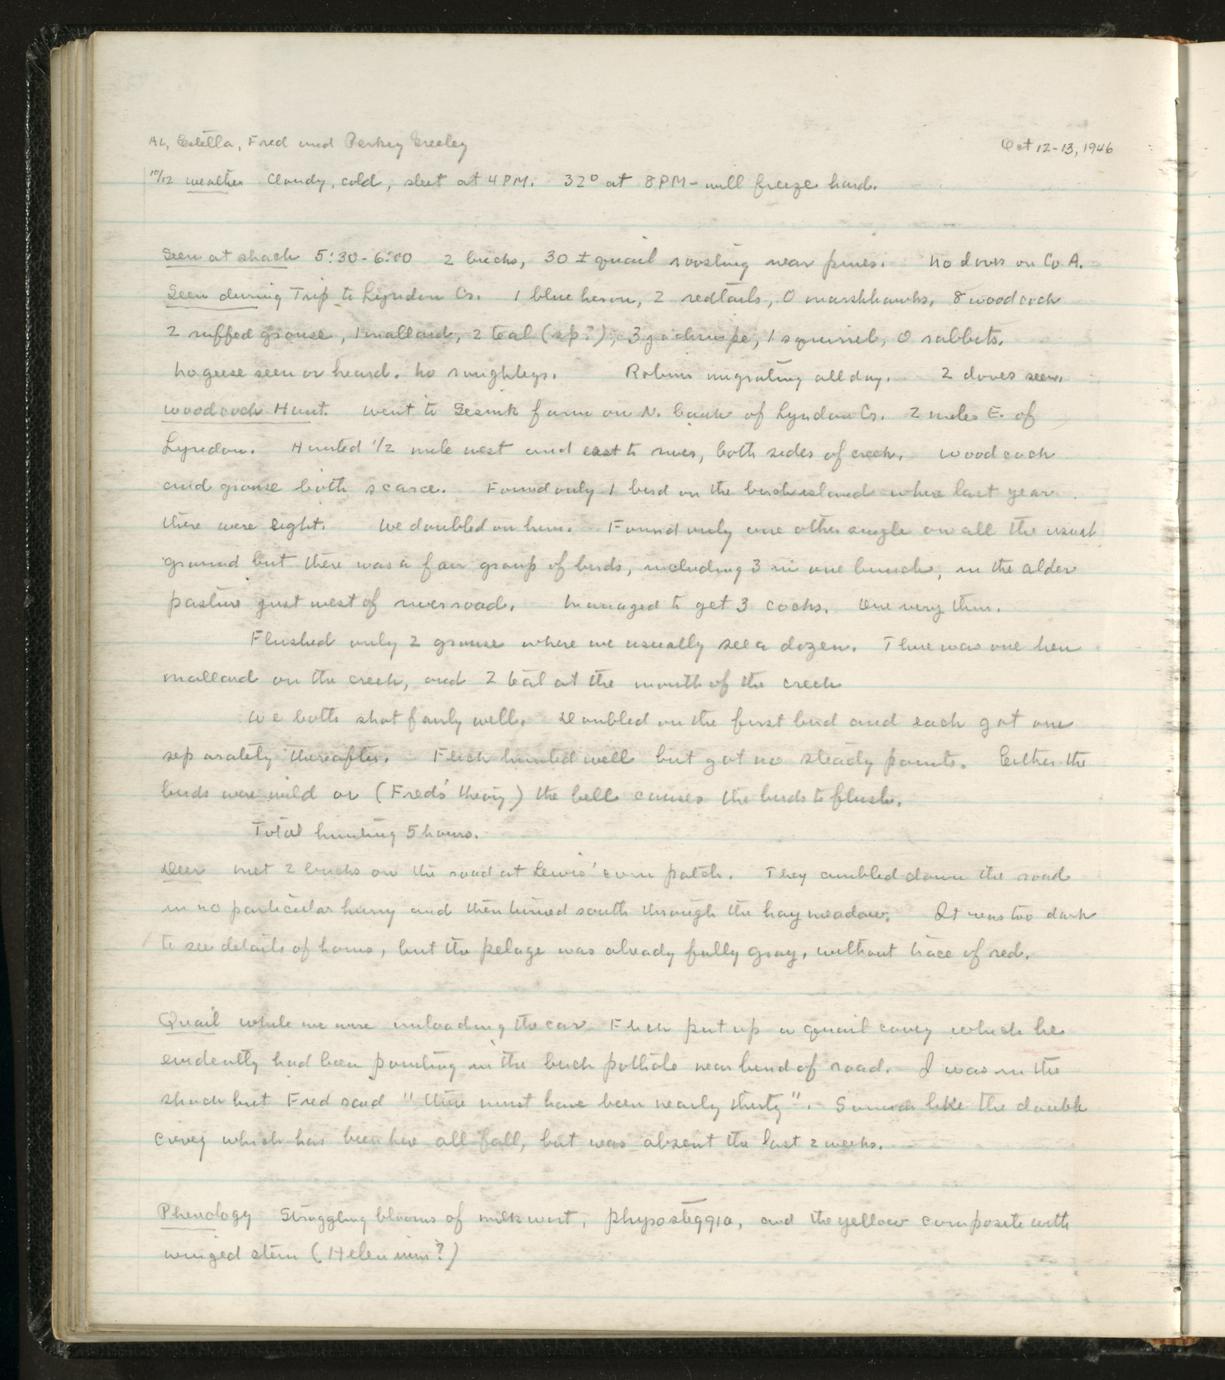 AL, Estella, Fred and Perky Greeley Oct 12-13, 1946
10/12 weather Cloudy, cold, sleet at 4 PM. 32° at 8 PM - will freeze hard.
Seen at shack 5:30-6:00 2 bucks, 30± quail roosting near pines. No doves on Co. A.
Seen during Trip to Lyndon Cr. 1 blue heron, 2 redtails, 0 marshhawks, 8 woodcock
2 ruffed grouse, 1 mallard, 2 teal (sp?), 3 jacksnipe, 1 squirrel, 0 rabbits.
No geese seen or heard. No roughlegs. Robins migrating all day. 2 doves seen.
Woodcock Hunt. Went to farm on N. bank of Lyndon Cr. 2 miles E. of
Lyndon. Hunted 1/2 mile west and east to river, both sides of creek. Woodcock
and grouse both scarce. Found only 1 bird on the birch island where last year
there were eight. We doubled on him. Found only one other single on all the usual
ground but there was a fair group of birds, including 3 in one bunch, in the alder
pasture just west of river road. Managed to get 3 cocks. One very thin.
Flushed only 2 grouse where we usually see a dozen. There was one hen
mallard on the creek, and 2 teal at the mouth of the creek
We both shot fairly well. Doubled on the first bird and each got one
separately thereafter. Flick hunted well but got no steady points. Either the
birds were wild or (Fred's theory) the bell causes the birds to flush.
Total hunting 5 hours.
Deer met 2 bucks on the road at Lewis' corn patch. They ambled down the road
in no particular hurry and then turned south through the hay meadow. It was too dark
to see details of horns, but the pelage was already fully gray, without trace of red.
Quail while we were unloading the car Flick put up a quail covey which he
evidently had been pointing in the birch pothole near bend of road. I was in the
shack but Fred said "there must have been nearly thirty". Sounds like the double
covey which has been here all fall, but was absent the last 2 weeks.
Phenology Straggling blooms of milkwort, physosteggia, and the yellow composite with
winged stem (Helenium?)